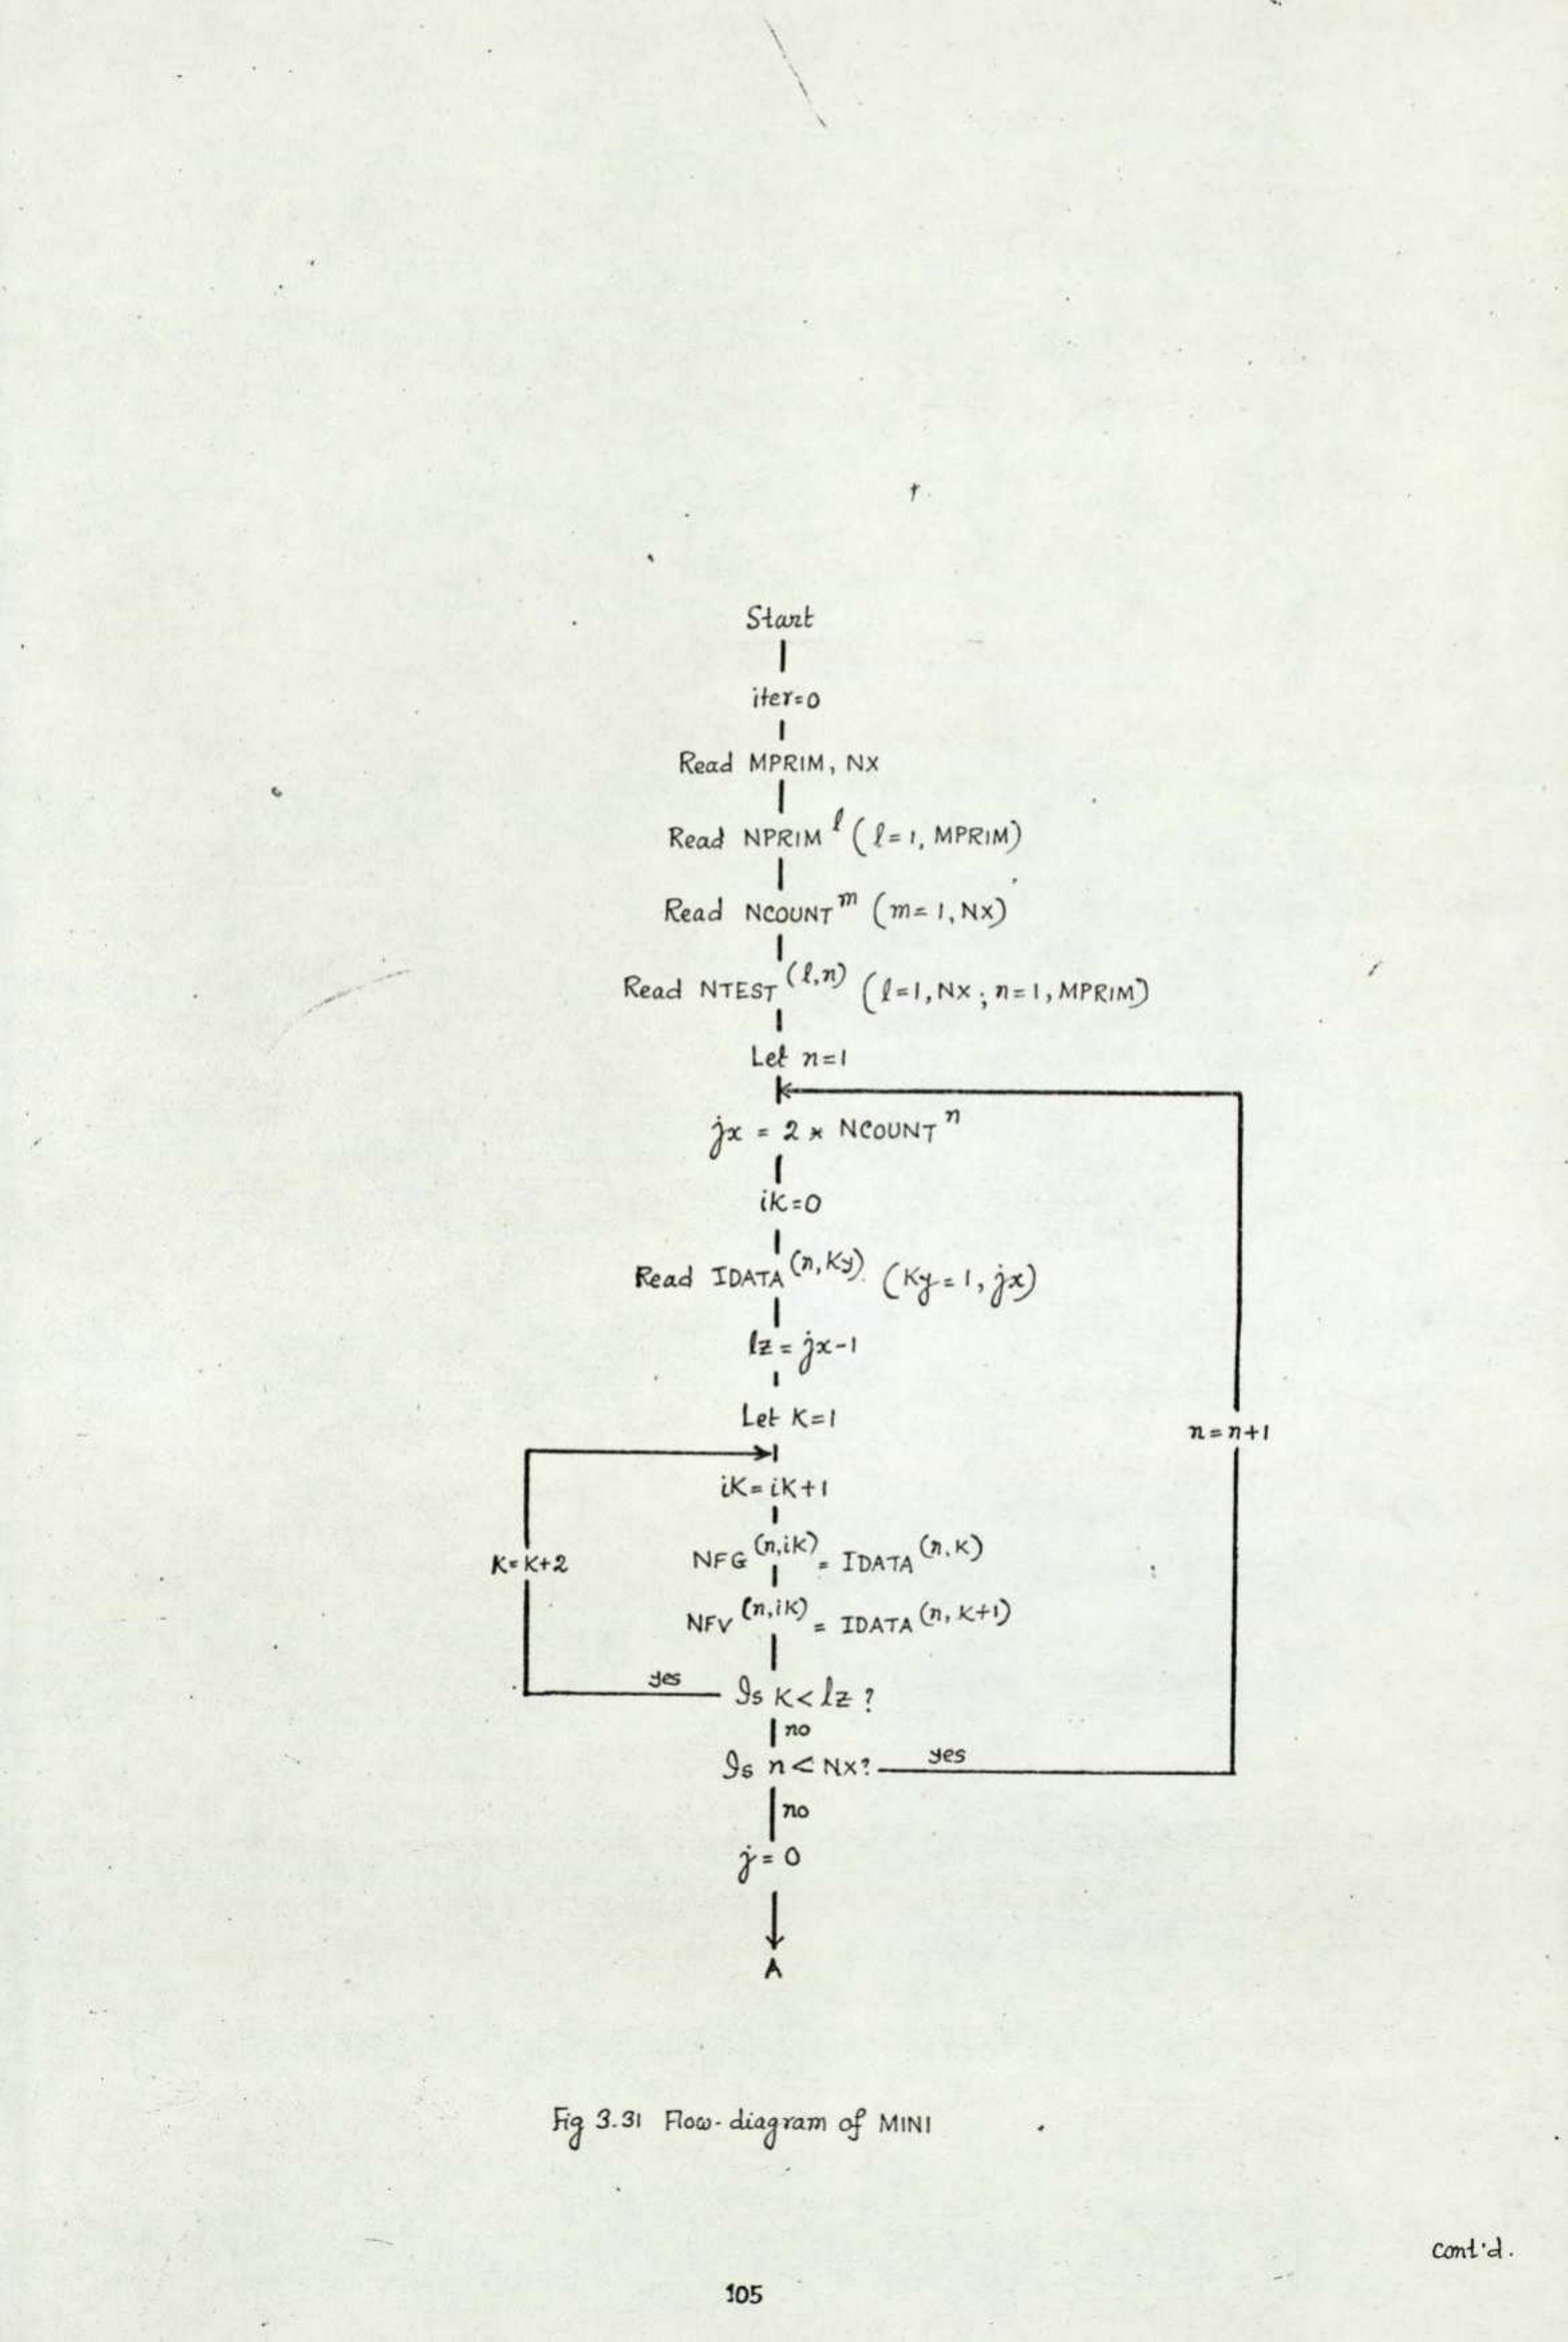 Start
iter=0
Read MPRIM, NX
Read NPRIM^l (l=1, MPRIM)
Read NCOUNT^m (m=1, NX)
Read NTEST^(l,n) (l=1, NX; n=1, MPRIM)
Let n=1
jx = 2 * NCOUNT^n
ik=0
Read IDATA^(n,Ky) (Ky=1, jx)
lz = jx-1
Let K=1
n=n+1
iK=iK+1
NFG^(n,ik) = IDATA^(n,K)
K=K+2
NFV^(n,ik) = IDATA^(n,K+1)
yes Is K<lz ?
no
Is n<NX? yes
no
j=0
A
Fig 3.31 Flow-diagram of MINI
Cont'd.
105